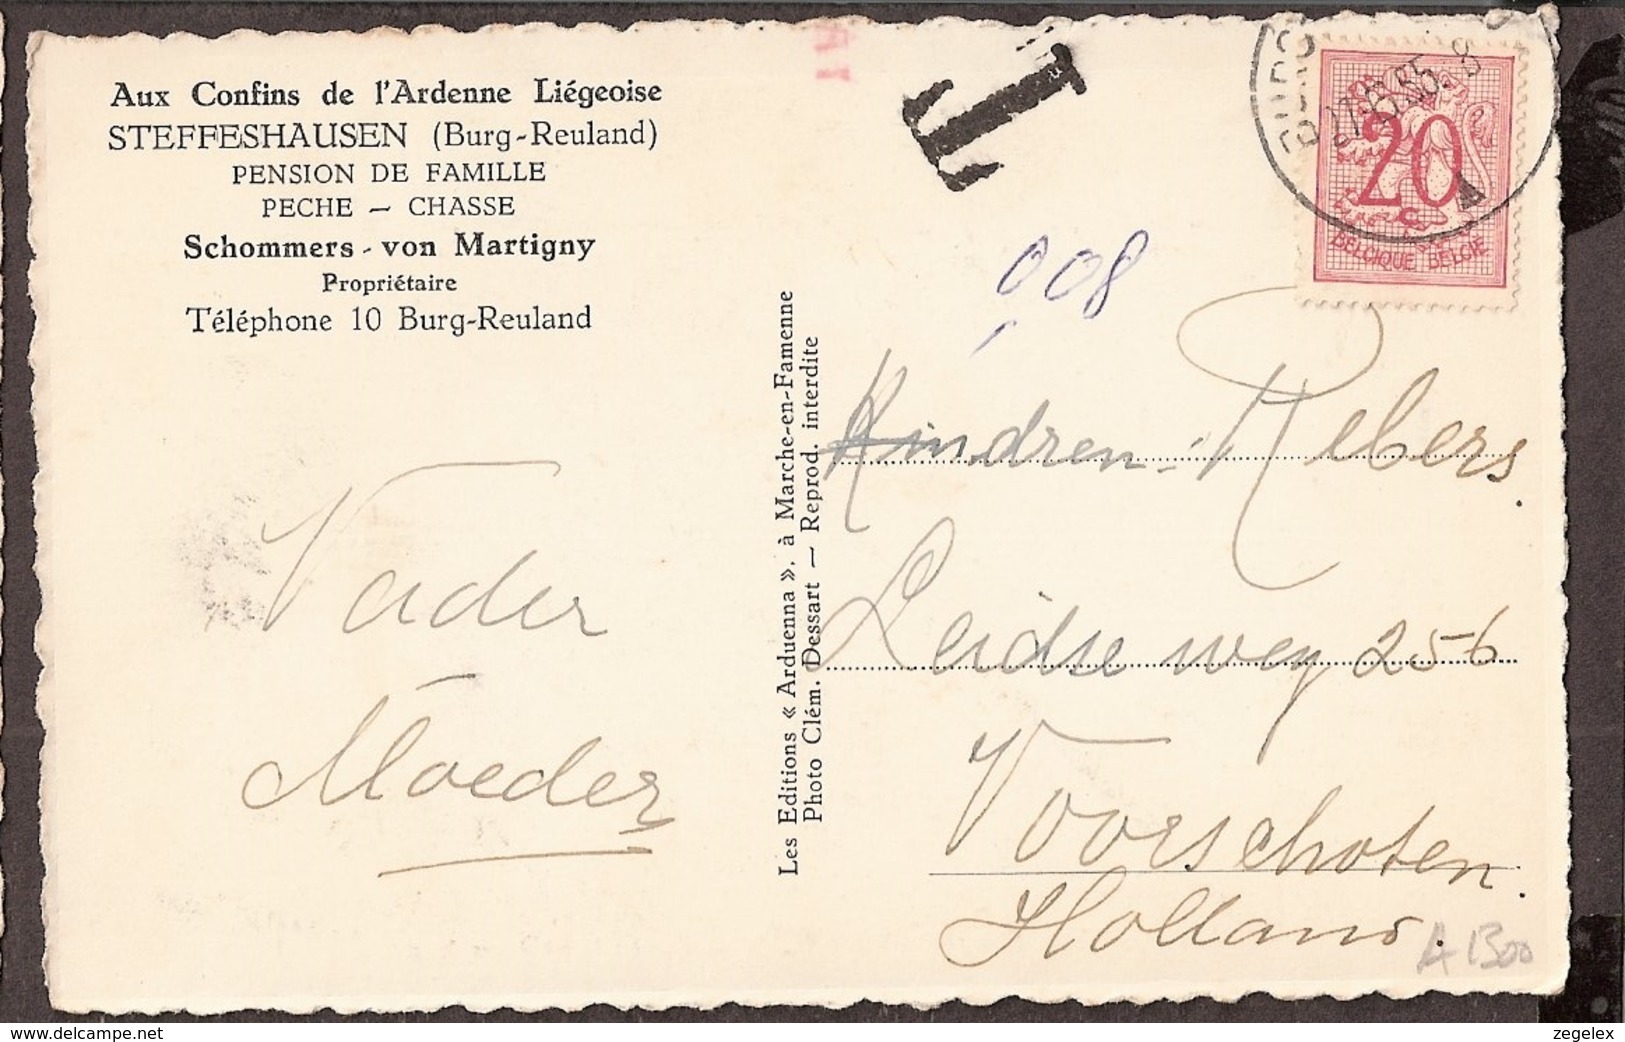 Aux Confins de l'Ardenne Liégeoise
STEFFESHAUSEN (Burg-Reuland)
PENSION DE FAMILLE
PECHE — CHASSE
Schommers - von Martigny
Propriétaire
Téléphone 10 Burg-Reuland
Vader
Moeder
Les Editions « Arduenna », à Marche-en-Famenne
Photo Clém. Dessart — Reprod. interdite
T
008
20
c
BELGIQUE BELGIË
A
Kindren - Rebers.
Leidse weg 256
Voorschoten.
Holland.
A 1300
www.delcampe.net
zegelex